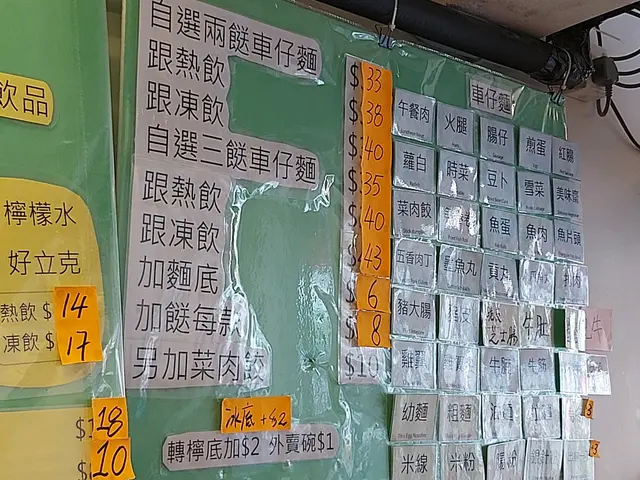 飲品
檸檬水
好立克
熱飲 $ 14
凍飲 $ 17
18
10
自選兩餸車仔麵 $ 33
跟熱飲 $ 38
跟凍飲 $ 40
自選三餸車仔麵 $ 35
跟熱飲 $ 40
跟凍飲 $ 43
加麵底 $ 6
加餸每款 $ 8
另加菜肉餃 $10
冰底 +$2
轉檸底加$2 外賣碗$1
車仔麵
午餐肉 火腿 腸仔 煎蛋 紅腸
蘿白 時菜 豆卜 雪菜 美味齋
菜肉餃 魚蛋 魚肉 魚片頭
五香肉丁 墨魚丸 貢丸
豬大腸 牛肚
幼麵 粗麵
米線 米粉